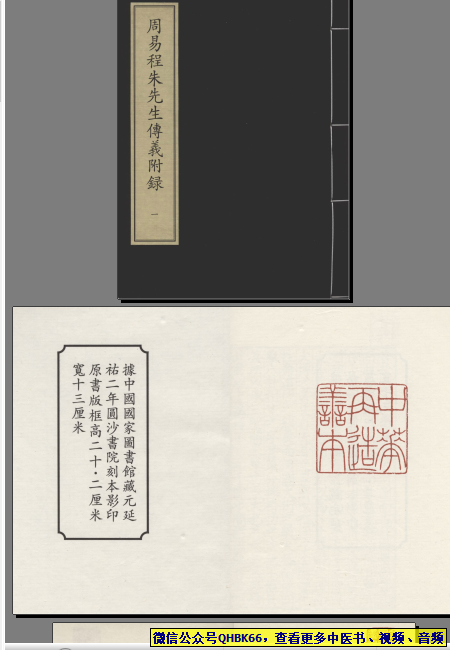 周易程朱先生傳義附録
一
據中國國家圖書館藏元延
祐二年圓沙書院刻本影印
原書版框高二十·二厘米
寬十三厘米
中華
再造
善本
微信公众号QHBK66，查看更多中医书、视频、音频